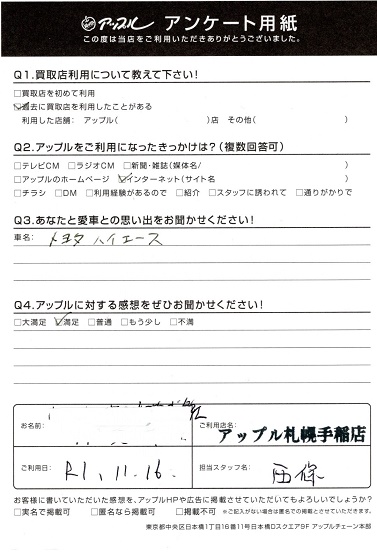 アップル アンケート用紙
この度は当店をご利用いただきありがとうございました。
Q1.買取店利用について教えて下さい!
□買取店を初めて利用
☑過去に買取店を利用したことがある
利用した店舗: アップル( )店 その他( )
Q2.アップルをご利用になったきっかけは?(複数回答可)
□テレビCM □ラジオCM □新聞・雑誌(媒体名/ )
□アップルのホームページ ☑インターネット(サイト名 )
□チラシ □DM □利用経験があるので □紹介 □スタッフに誘われて □通りがかりで
Q3.あなたと愛車との思い出をお聞かせください!
車名: トヨタ ハイエース
Q4.アップルに対する感想をぜひお聞かせください!
□大満足 ☑満足 □普通 □もう少し □不満
お名前:
ご利用店名:
アップル札幌手稲店
ご利用日: R1.11.16.
担当スタッフ名: 西條
お客様に書いていただいた感想を、アップルHPや広告に掲載させていただいてもよろしいでしょうか?
□実名で掲載可 □匿名なら掲載可 □掲載不可 ※ご記入がない場合は匿名での掲載とさせていただきます。
東京都中央区日本橋1丁目16番11号日本橋Dスクエア9F アップルチェーン本部